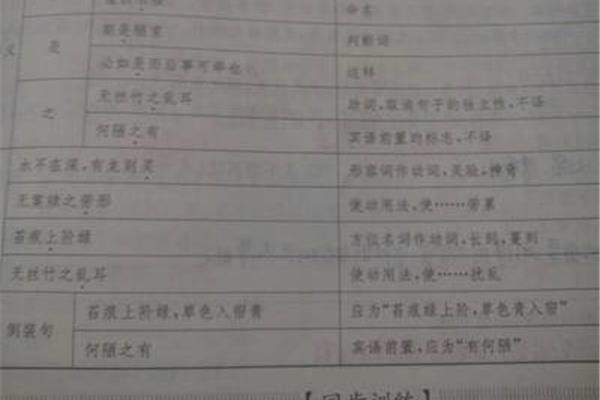 命名
义
是
斯是陋室
判断词
必如是而后事可举也
这样
之
无丝竹之乱耳
助词,取消句子的独立性,不译
何陋之有
宾语前置的标志,不译
水不在深,有龙则灵
形容词作动词,灵验,神奇
无案牍之劳形
使动用法,使……劳累
苔痕上阶绿
方位名词作动词,长到,蔓到
无丝竹之乱耳
使动用法,使……扰乱
倒装句
苔痕上阶绿,草色入帘青
应为“苔痕绿上阶,草色青入帘”
何陋之有
宾语前置,应为“有何陋”
【同步训练】